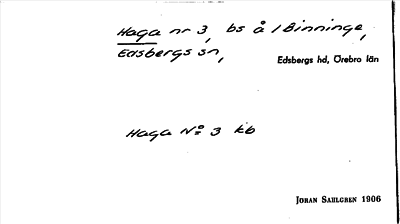 Haga nr 3, bs å /Binninge,
Edsbergs sn,
Edsbergs hd, Örebro län
Haga No 3 kb
JOHAN SAHLGREN 1906